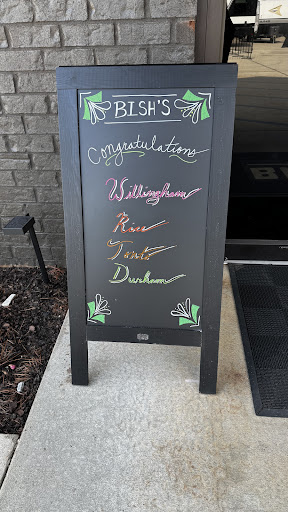 BISH'S
Congratulations
Willingham
Rice
Durham